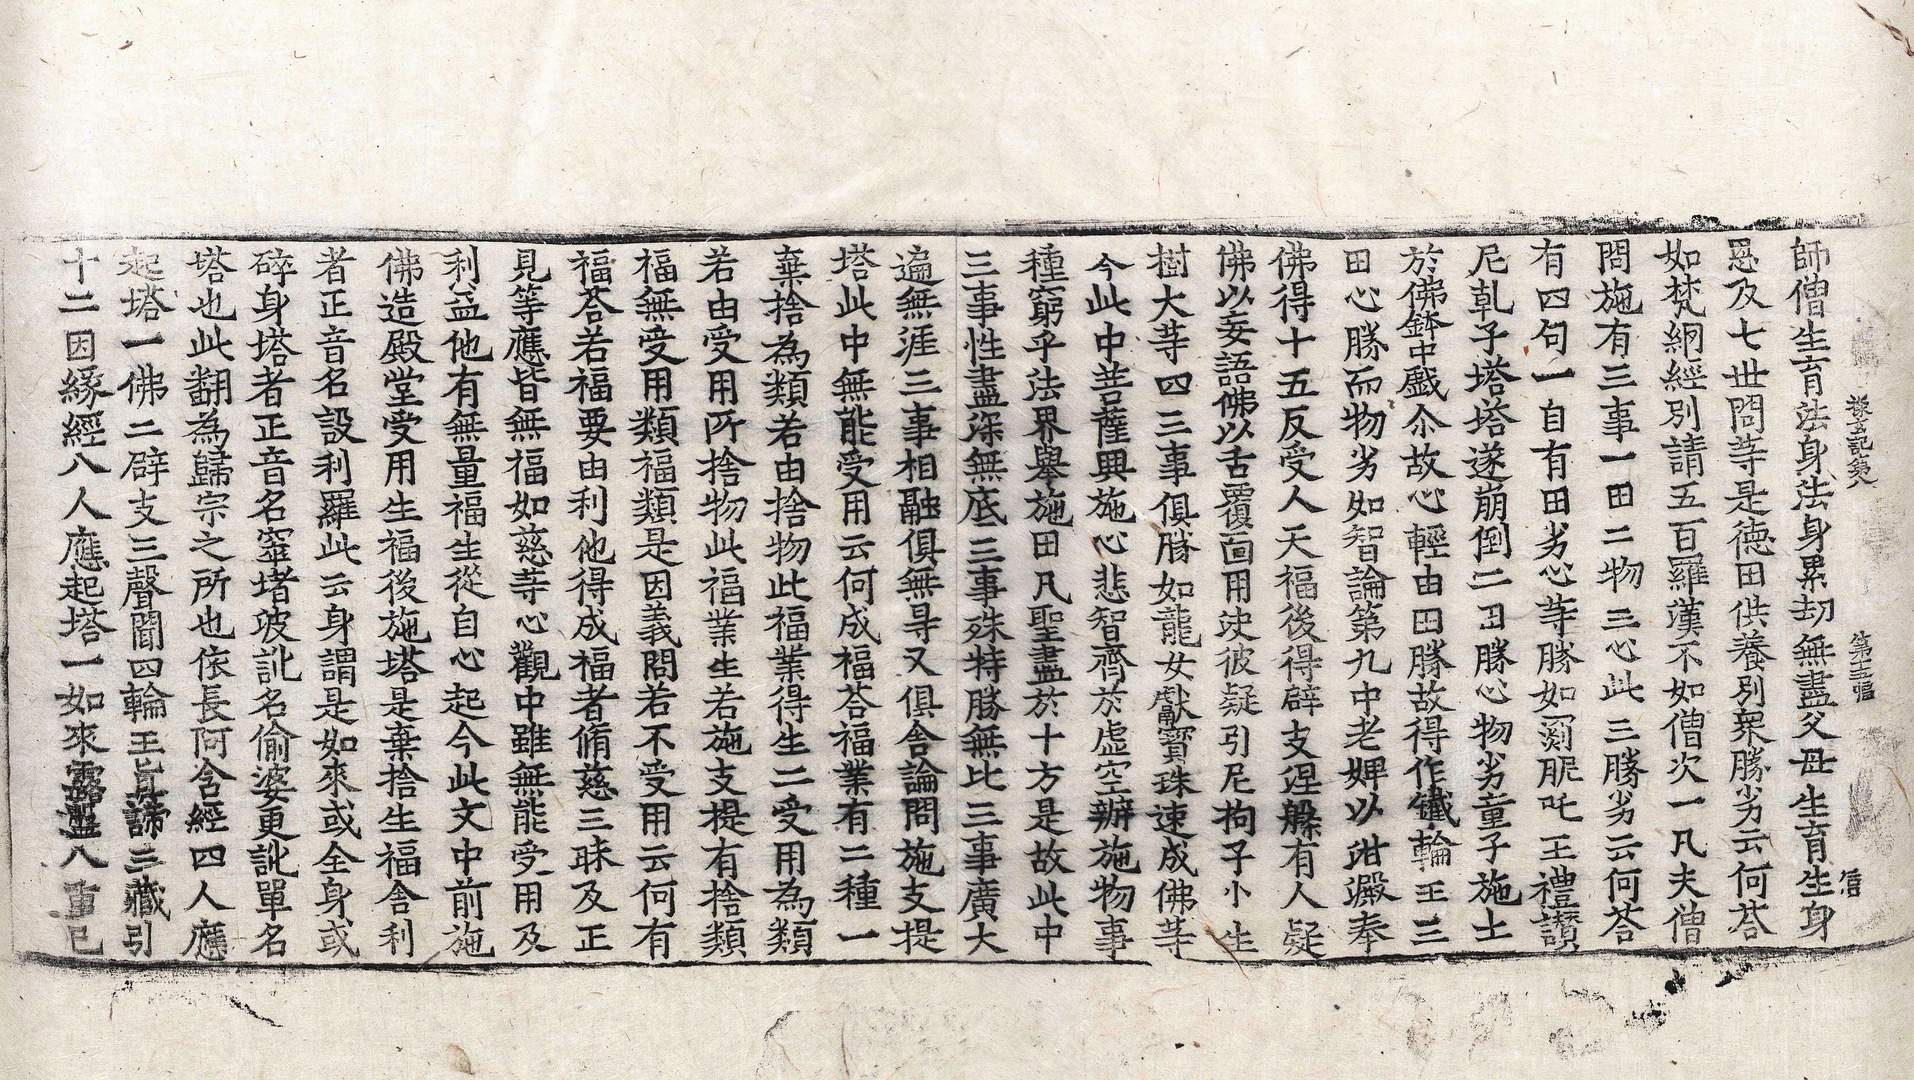 師僧生育法身法身累劫無盡父母生育生身
恩及七世問等是徳田供養別衆勝劣云何荅
如梵網經別請五百羅漢不如僧次一凡夫僧
問施有三事一田二物三心此三勝劣云何荅
有四句一自有田劣心等勝如罽昵吒王禮讃
尼乹子塔塔遂崩倒二曰勝心物劣童子施土
於佛鉢中戲尒故心輕由田勝故得作鐵輪王三
田心勝而物劣如智論第九中老婢以泔澱奉
佛得十五反受人天福後得辟支涅般有人疑
佛以妄語佛以舌覆面用决彼疑引尼拘子小生
樹大䓁四三事俱勝如龍女獻寳珠速成佛䓁
今此中菩薩興施心悲智齊於虚空辦施物事
種窮乎法界舉施田凡聖盡於十方是故此中
三事性盡深無底三事殊特勝無比三事廣大
遍無涯三事相融俱無㝵又俱舍論問施支提
塔此中無能受用云何成福荅福業有二種一
棄捨為類若由捨物此福業得生二受用為類
若由受用所捨物此福業生若施支提有捨類
福無受用類福類是因義問若不受用云何有
福荅若福要由利他得成福者脩慈三昧及正
見等應皆無福如慈䓁心觀中雖無能受用及
利益他有無量福生從自心起今此文中前施
佛造殿堂受用生福後施塔是棄捨生福舍利
者正音名設利羅此云身謂是如來或全身或
碎身塔者正音名窣堵波訛名偷婆更訛單名
塔也此翻為歸宗之所也依長阿含經四人應
起塔一佛二辟支三聲聞四輪王真諦三藏引
十二因縁經八人應起塔一如來露盤八重已